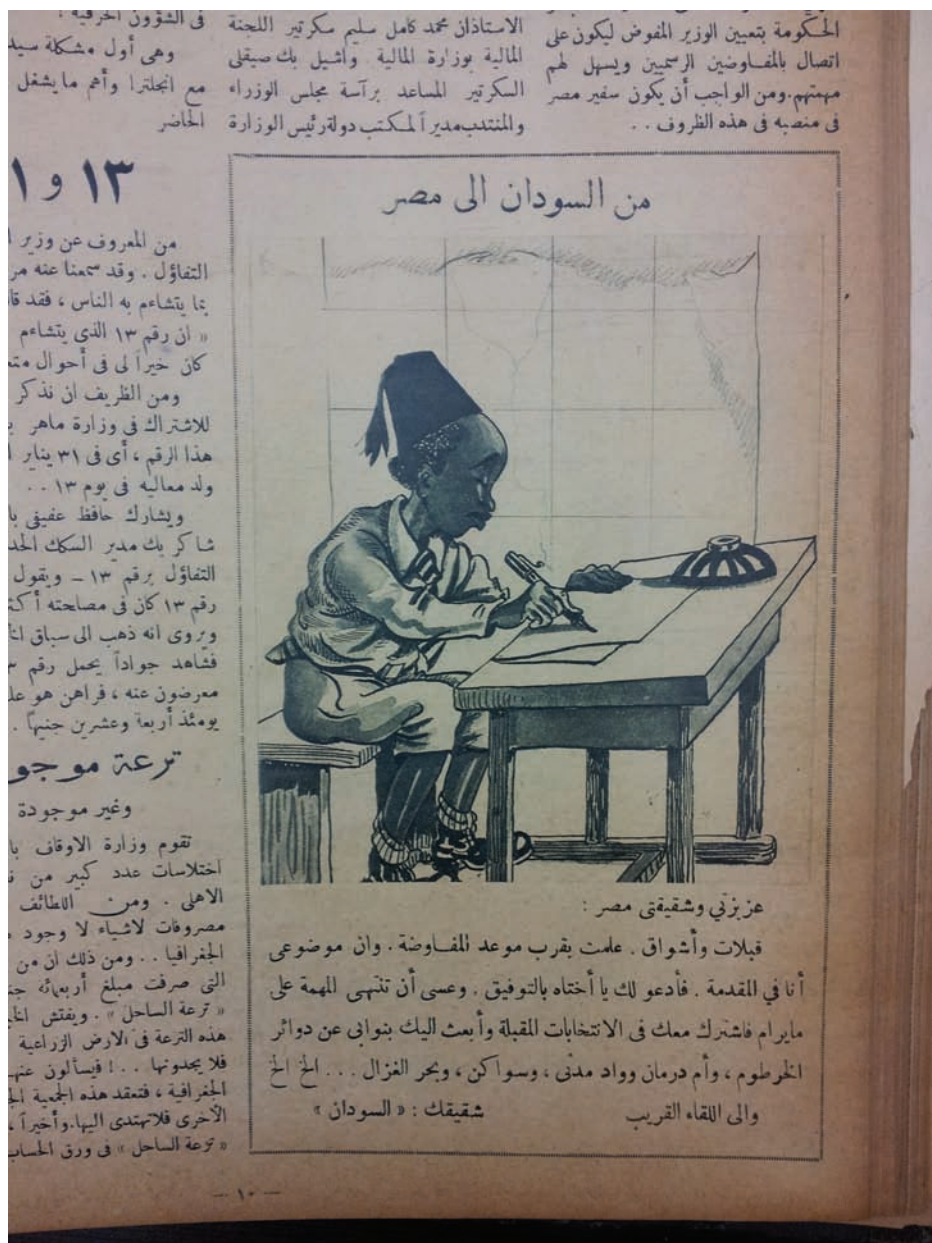 الحكومة بتعيين الوزير المفوض ليكون على
اتصال بالمفاوضين الرسميين ويسهل لهم
مهمتهم.ومن الواجب أن يكون سفير مصر
فى منصبه فى هذه الظروف . .
الاستاذان محمد كامل سليم سكرتير اللجنة
المالية بوزارة المالية واشيل بك صيقلى
السكرتير المساعد برآسة مجلس الوزراء
والمنتدب مديراً لمكتب دولة رئيس الوزارة
فى الشؤون الحرفية .
وهى أول مشكلة
مع انجلترا وأهم ما يشغل
الحاضر
من السودان الى مصر
عزيزتي وشقيقتى مصر :
قبلات وأشواق . علمت بقرب موعد المفاوضة . وان موضوعى
أنا في المقدمة . فأدعو لك يا أختاه بالتوفيق . وعسى أن تنتهى المهمة على
مايرام فاشترك معك فى الانتخابات المقبلة وأبعث اليك بنوابى عن دوائر
الخرطوم ، وأم درمان وواد مدنى ، وسواكن ، وبحر الغزال ... الخ الخ
والى اللقاء القريب
شقيقك : « السودان »
١٣ و
من المعروف عن وزير
التفاؤل . وقد سمعنا عنه
بما يتشاءم به الناس ، فقد
« ان رقم ١٣ الذى يتشاءم
كان خيراً لى فى أحوال
ومن الظريف ان نذكر
للاشتراك فى وزارة ماهر
هذا الرقم ، أى فى ٣١ يناير
ولد معاليه فى يوم ١٣ . .
ويشارك حافظ عفيفى
شاكر بك مدير السكك
التفاؤل برقم ١٣ – ويقول
رقم ١٣ كان فى مصلحته
ويروى انه ذهب الى سباق
فشاهد جواداً يحمل رقم
معرضون عنه ، فراهن هو
يومئذ أربعة وعشرين جنيهاً .
ترعة
وغير موجودة
تقوم وزارة الاوقاف
اختلاسات عدد كبير من
الاهلى . ومن اللطائف
مصروفات لاشياء لا وجود
الجغرافيا . . ومن ذلك ان من
التى صرفت مبلغ أربعمائة
« ترعة الساحل » . ويفتش
هذه الترعة فى الارض الزراعية
فلا يجدونها . . ! فيسألون
الجغرافية ، فتعقد هذه الجمعية
الأخرى فلا تهتدى اليها.وأخيراً
« ترعة الساحل » فى ورق
— ١٠ —